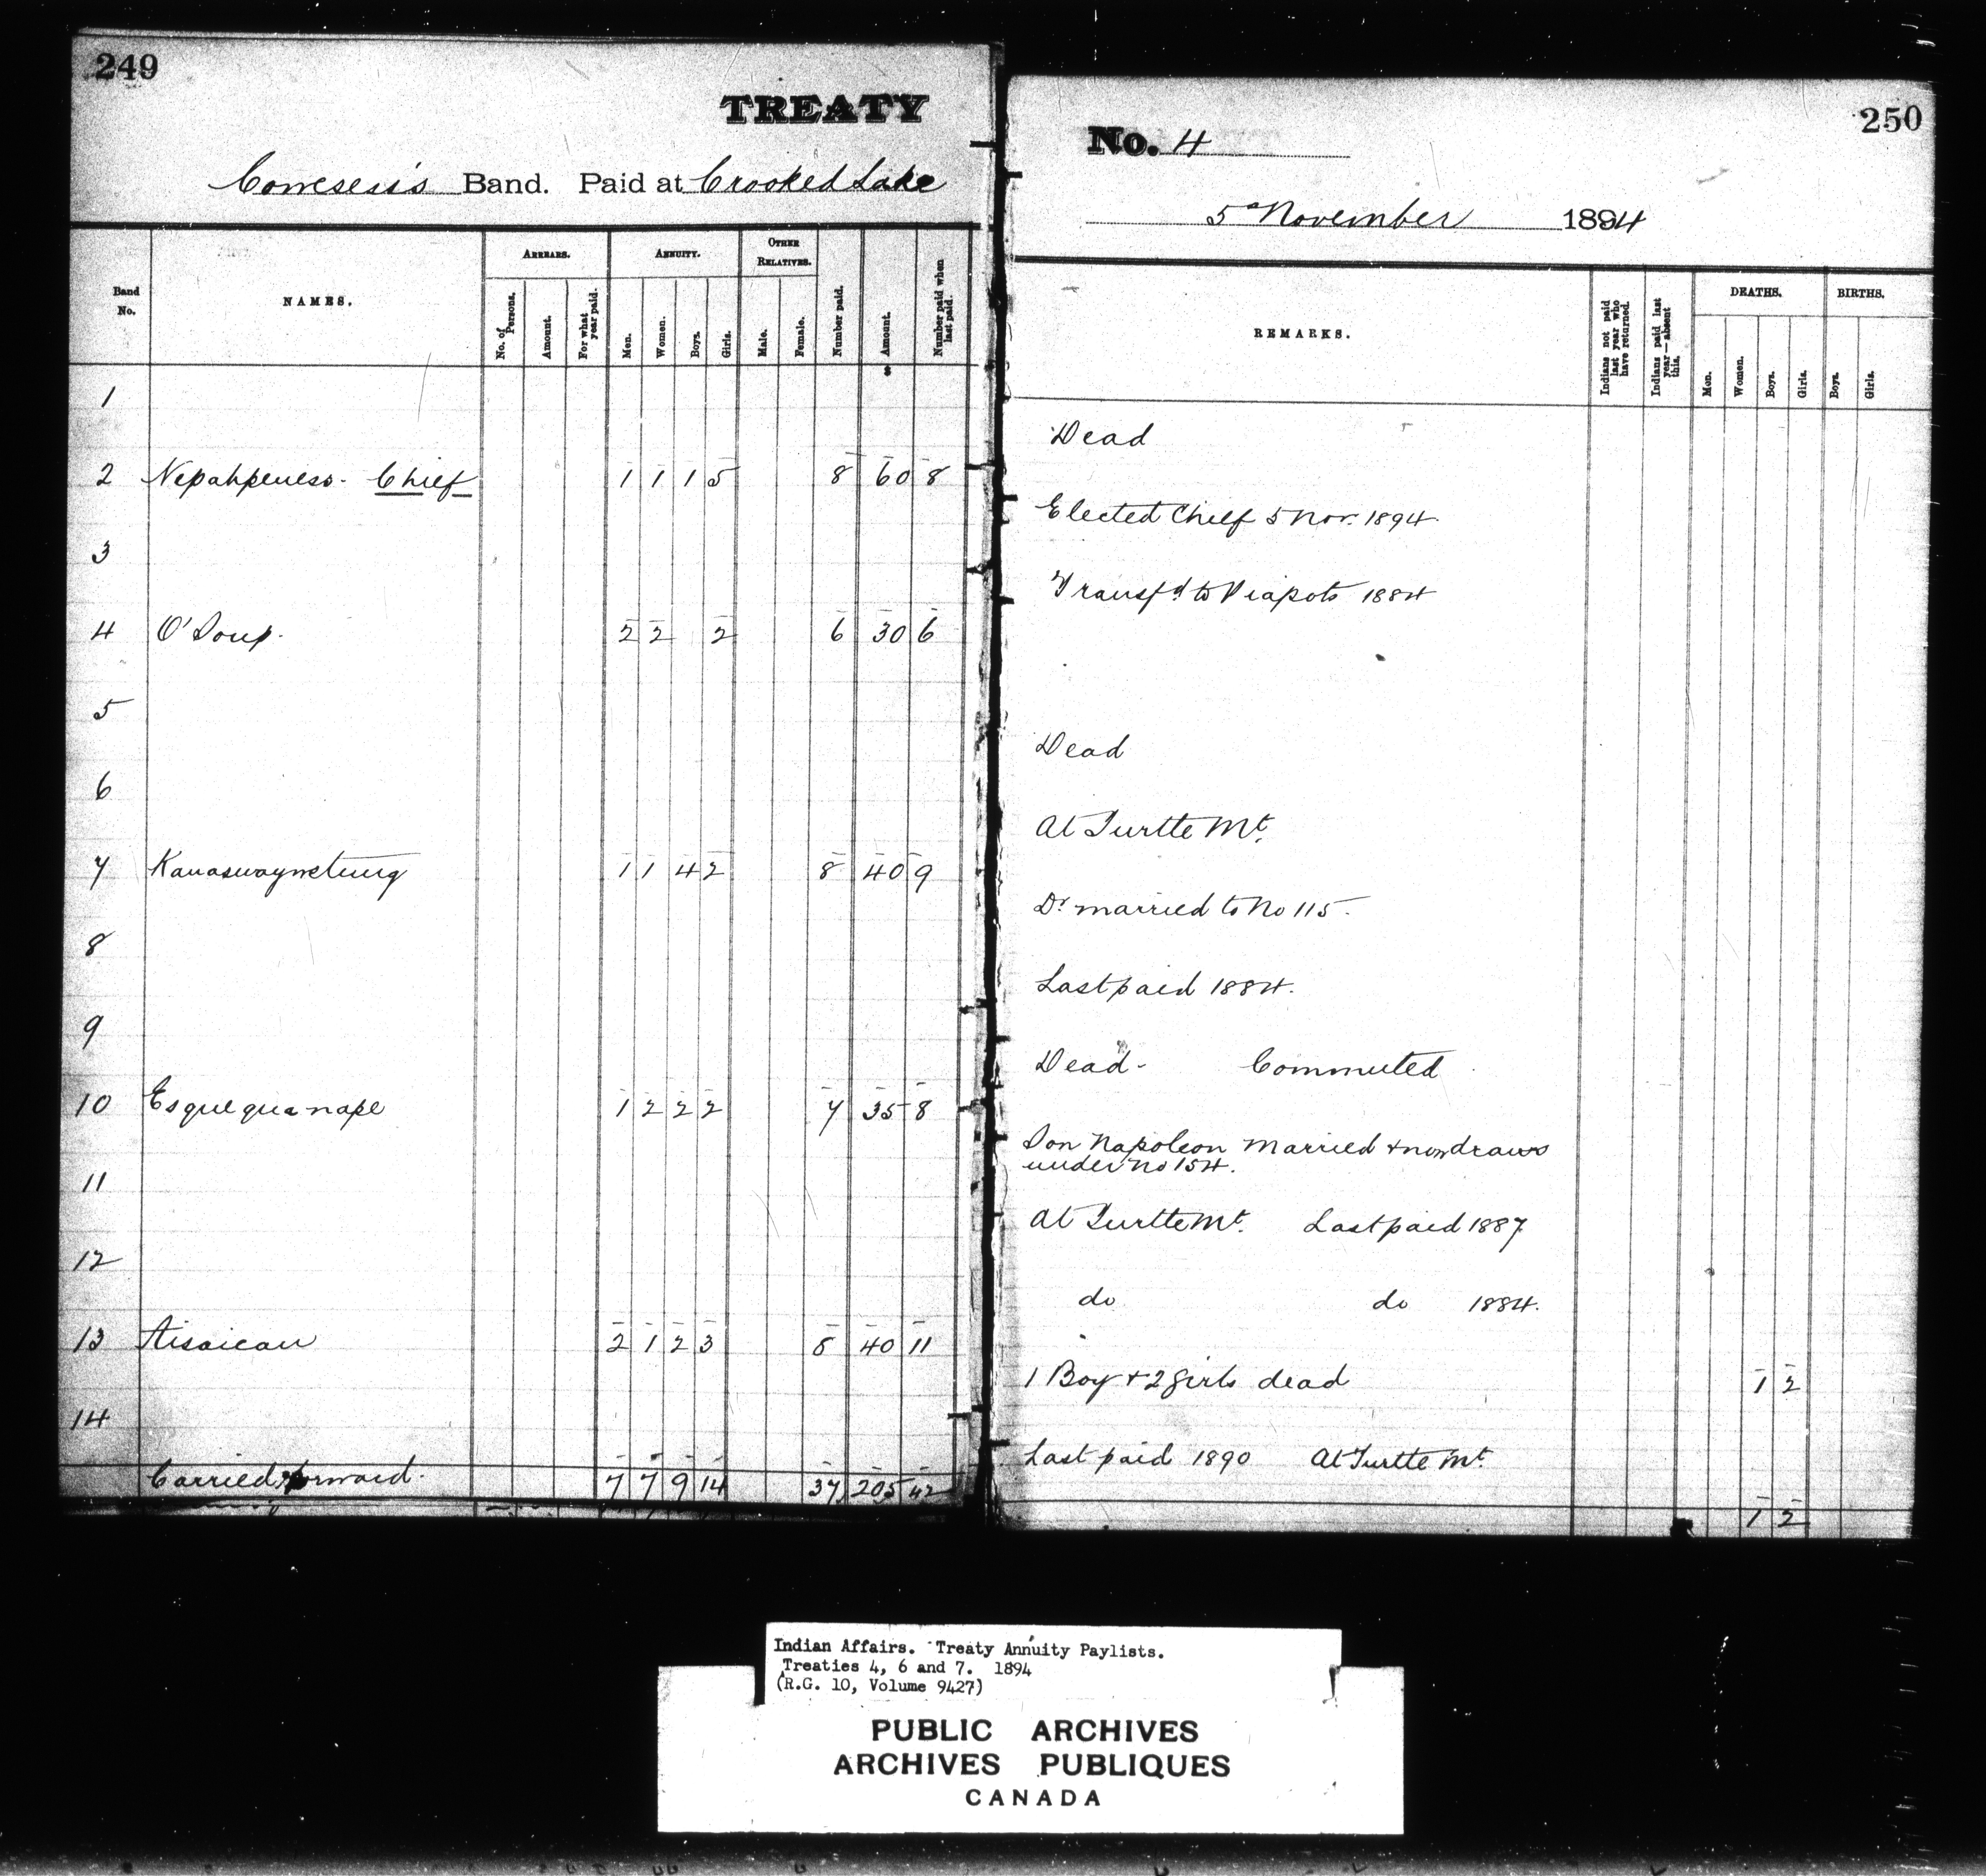 249
TREATY
Cowesess's Band. Paid at Crooked Lake
Band No.
NAMES.
ARREARS.
No. of Persons.
Amount.
For what year paid.
ANNUITY.
Men.
Women.
Boys.
Girls.
OTHER RELATIVES.
Male.
Female.
Number paid.
Amount.
Number paid when last paid.
$
1
2 Nepahpeness - Chief 1 1 1 5 8 60 8
3
4 O'Soup. 2 2 2 6 30 6
5
6
7 Kanaswaywetung 1 1 4 2 8 40 9
8
9
10 Esquequanape 1 2 2 2 7 35 8
11
12
13 Aisaican 2 1 2 3 8 40 11
14
Carried forward. 7 7 9 14 37 205 42
250
No. 4
5 November 1894
REMARKS.
Indians not paid last year who have returned.
Indians paid last year—absent this.
DEATHS.
Men.
Women.
Boys.
Girls.
BIRTHS.
Boys.
Girls.
Dead
Elected Chief 5 Nov. 1894.
Transfd to Piapots 1884
Dead
At Turtle Mt.
Dr married to No 115.
Last paid 1884.
Dead - Commuted
Son Napoleon Married + now draws
under No 154.
At Turtle Mt. Last paid 1887
do do 1884.
1 Boy + 2 girls dead 1 2
Last paid 1890 At Turtle Mt.
1 2
Indian Affairs. Treaty Annuity Paylists.
Treaties 4, 6 and 7. 1894
(R.G. 10, Volume 9427)
PUBLIC ARCHIVES
ARCHIVES PUBLIQUES
CANADA